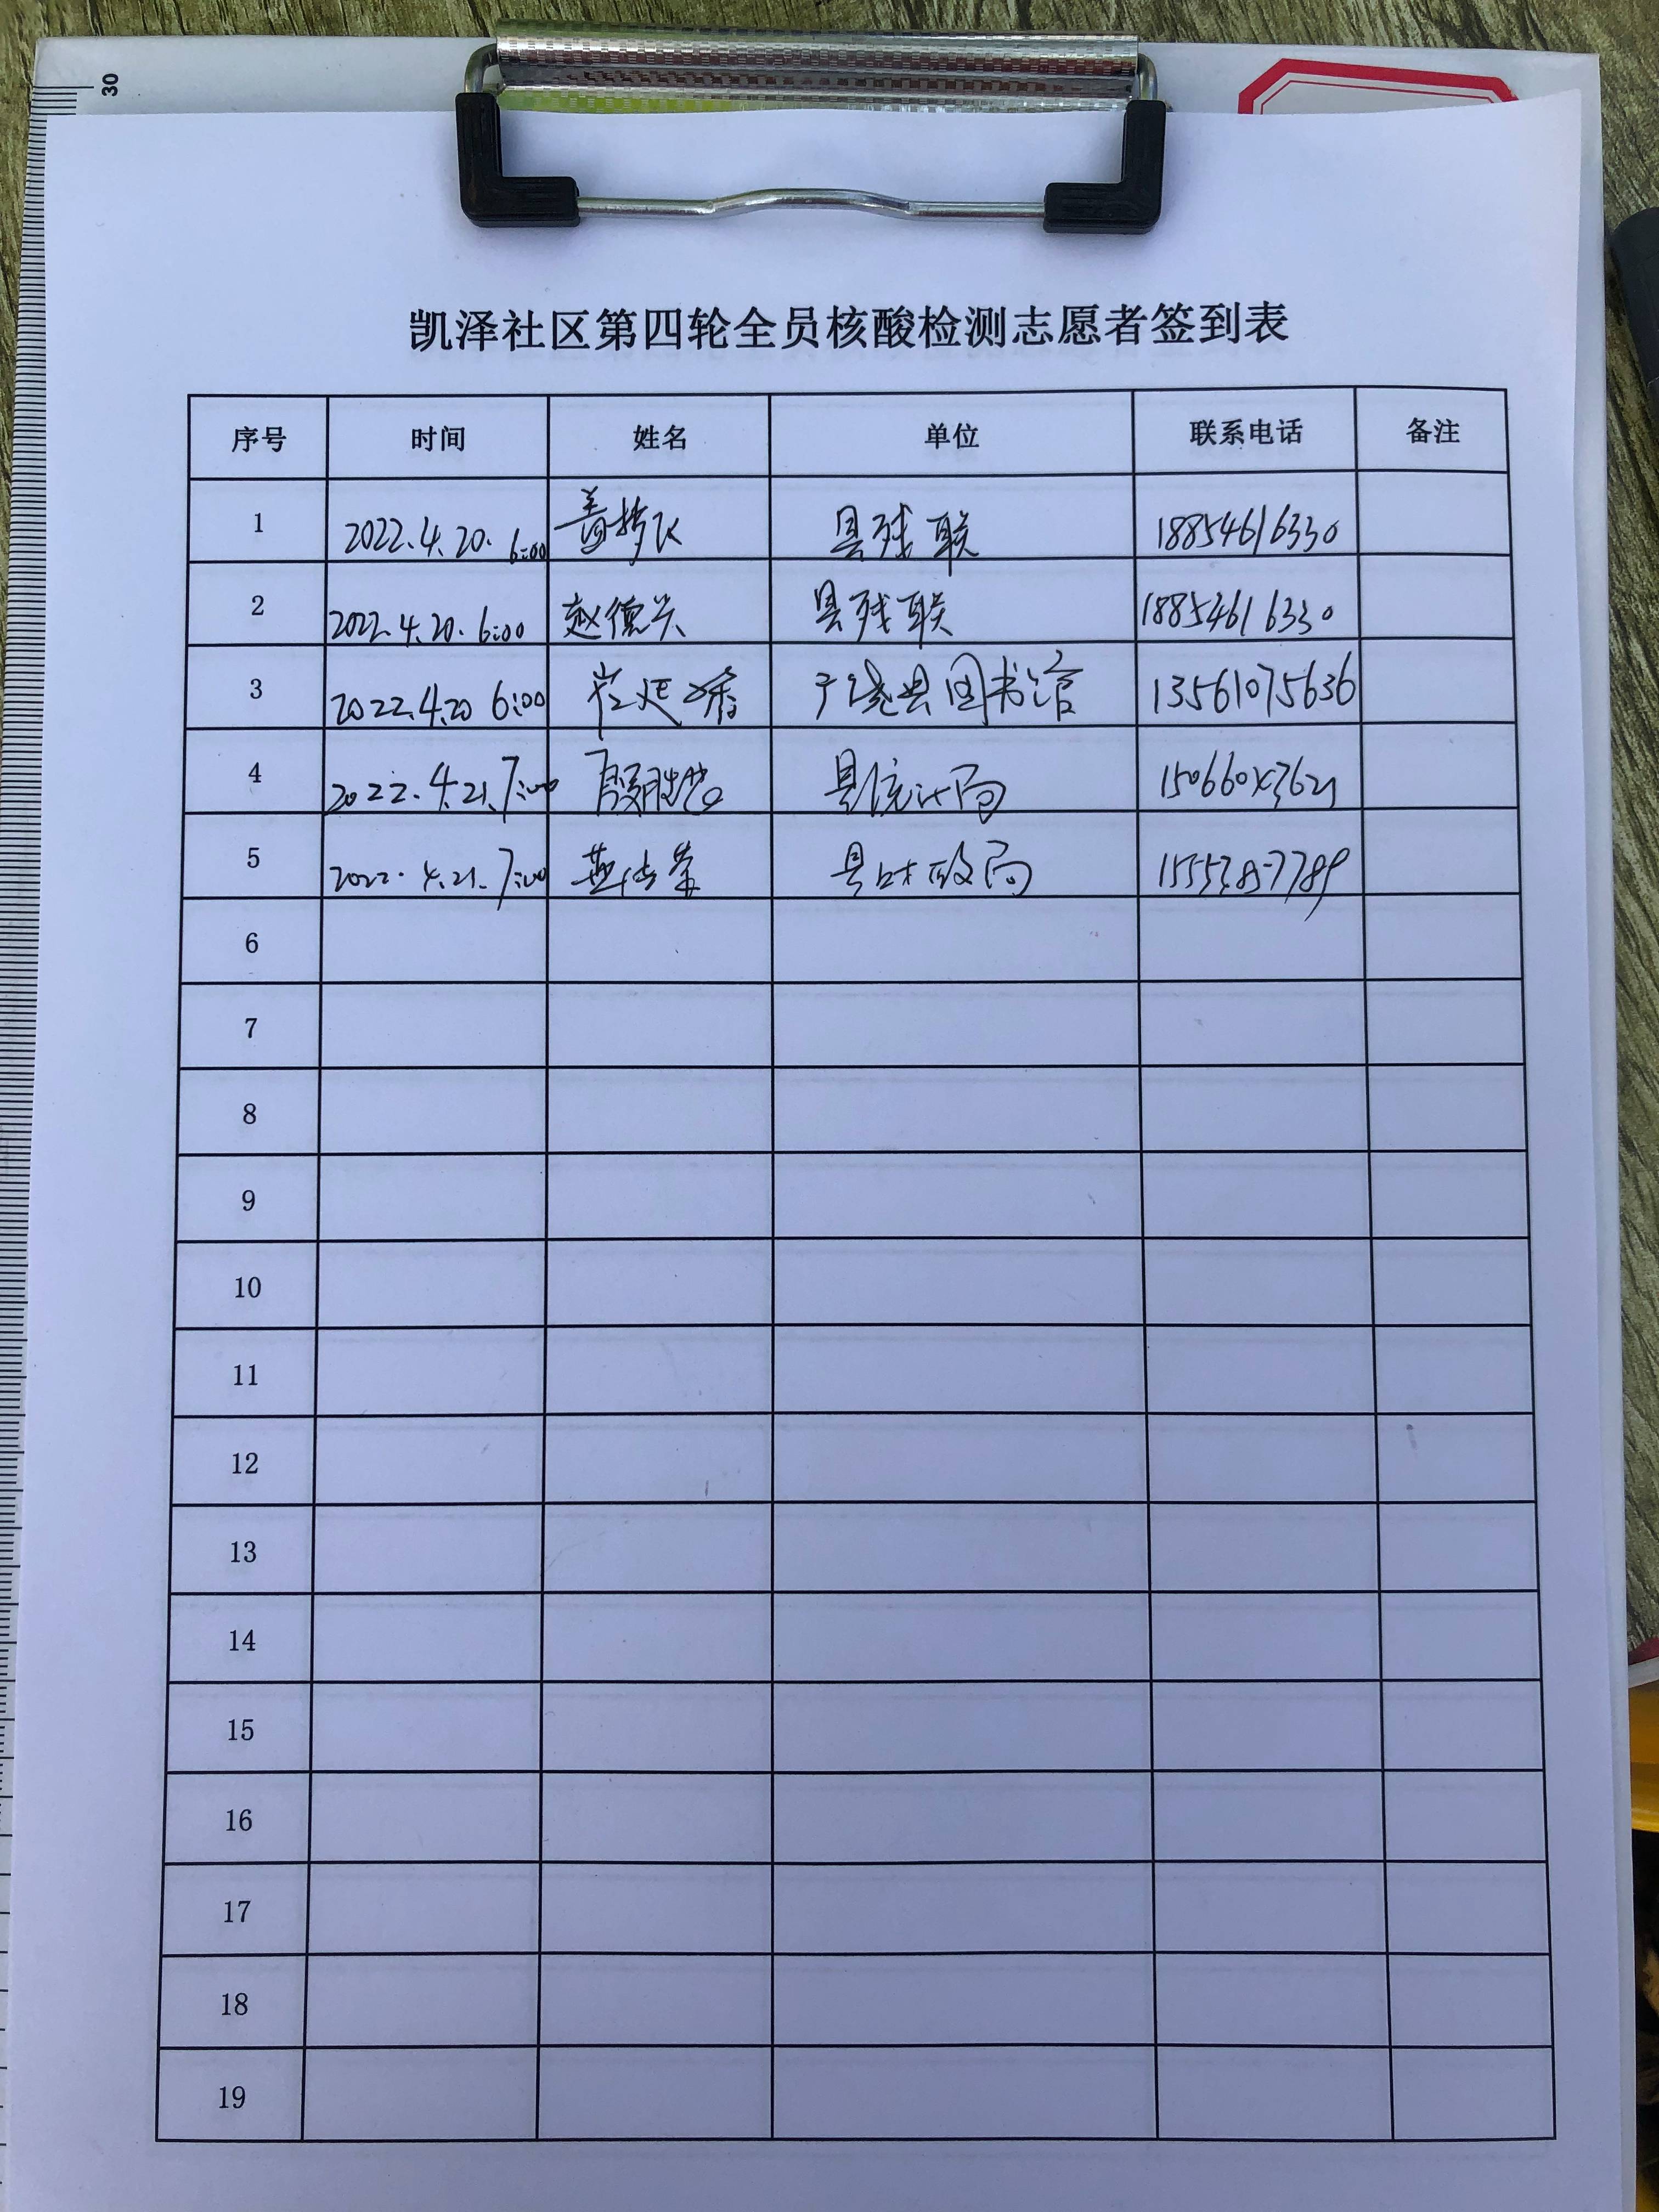 30
凯泽社区第四轮全员核酸检测志愿者签到表
序号 时间 姓名 单位 联系电话 备注
1 2022.4.20. 6:00 县残联 18854616330
2 2022.4.20. 6:00 赵德兴 县残联 18854616330
3 2022.4.20 6:00 崔延香 广饶县图书馆 13561075636
4 2022.4.21.7:00 县统计局
5 2022.4.21.7:00 县财政局
6
7
8
9
10
11
12
13
14
15
16
17
18
19